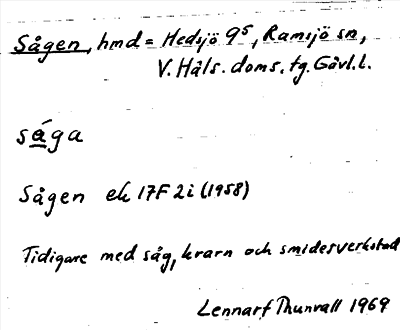 Sågen, hmd = Hedsjö 9⁵, Ramsjö sn,
V. Häls. doms. tg. Gävl. l.
sága
Sågen ek 17F 2i (1958)
Tidigare med såg, kvarn och smidesverkstad
Lennart Thunvall 1969